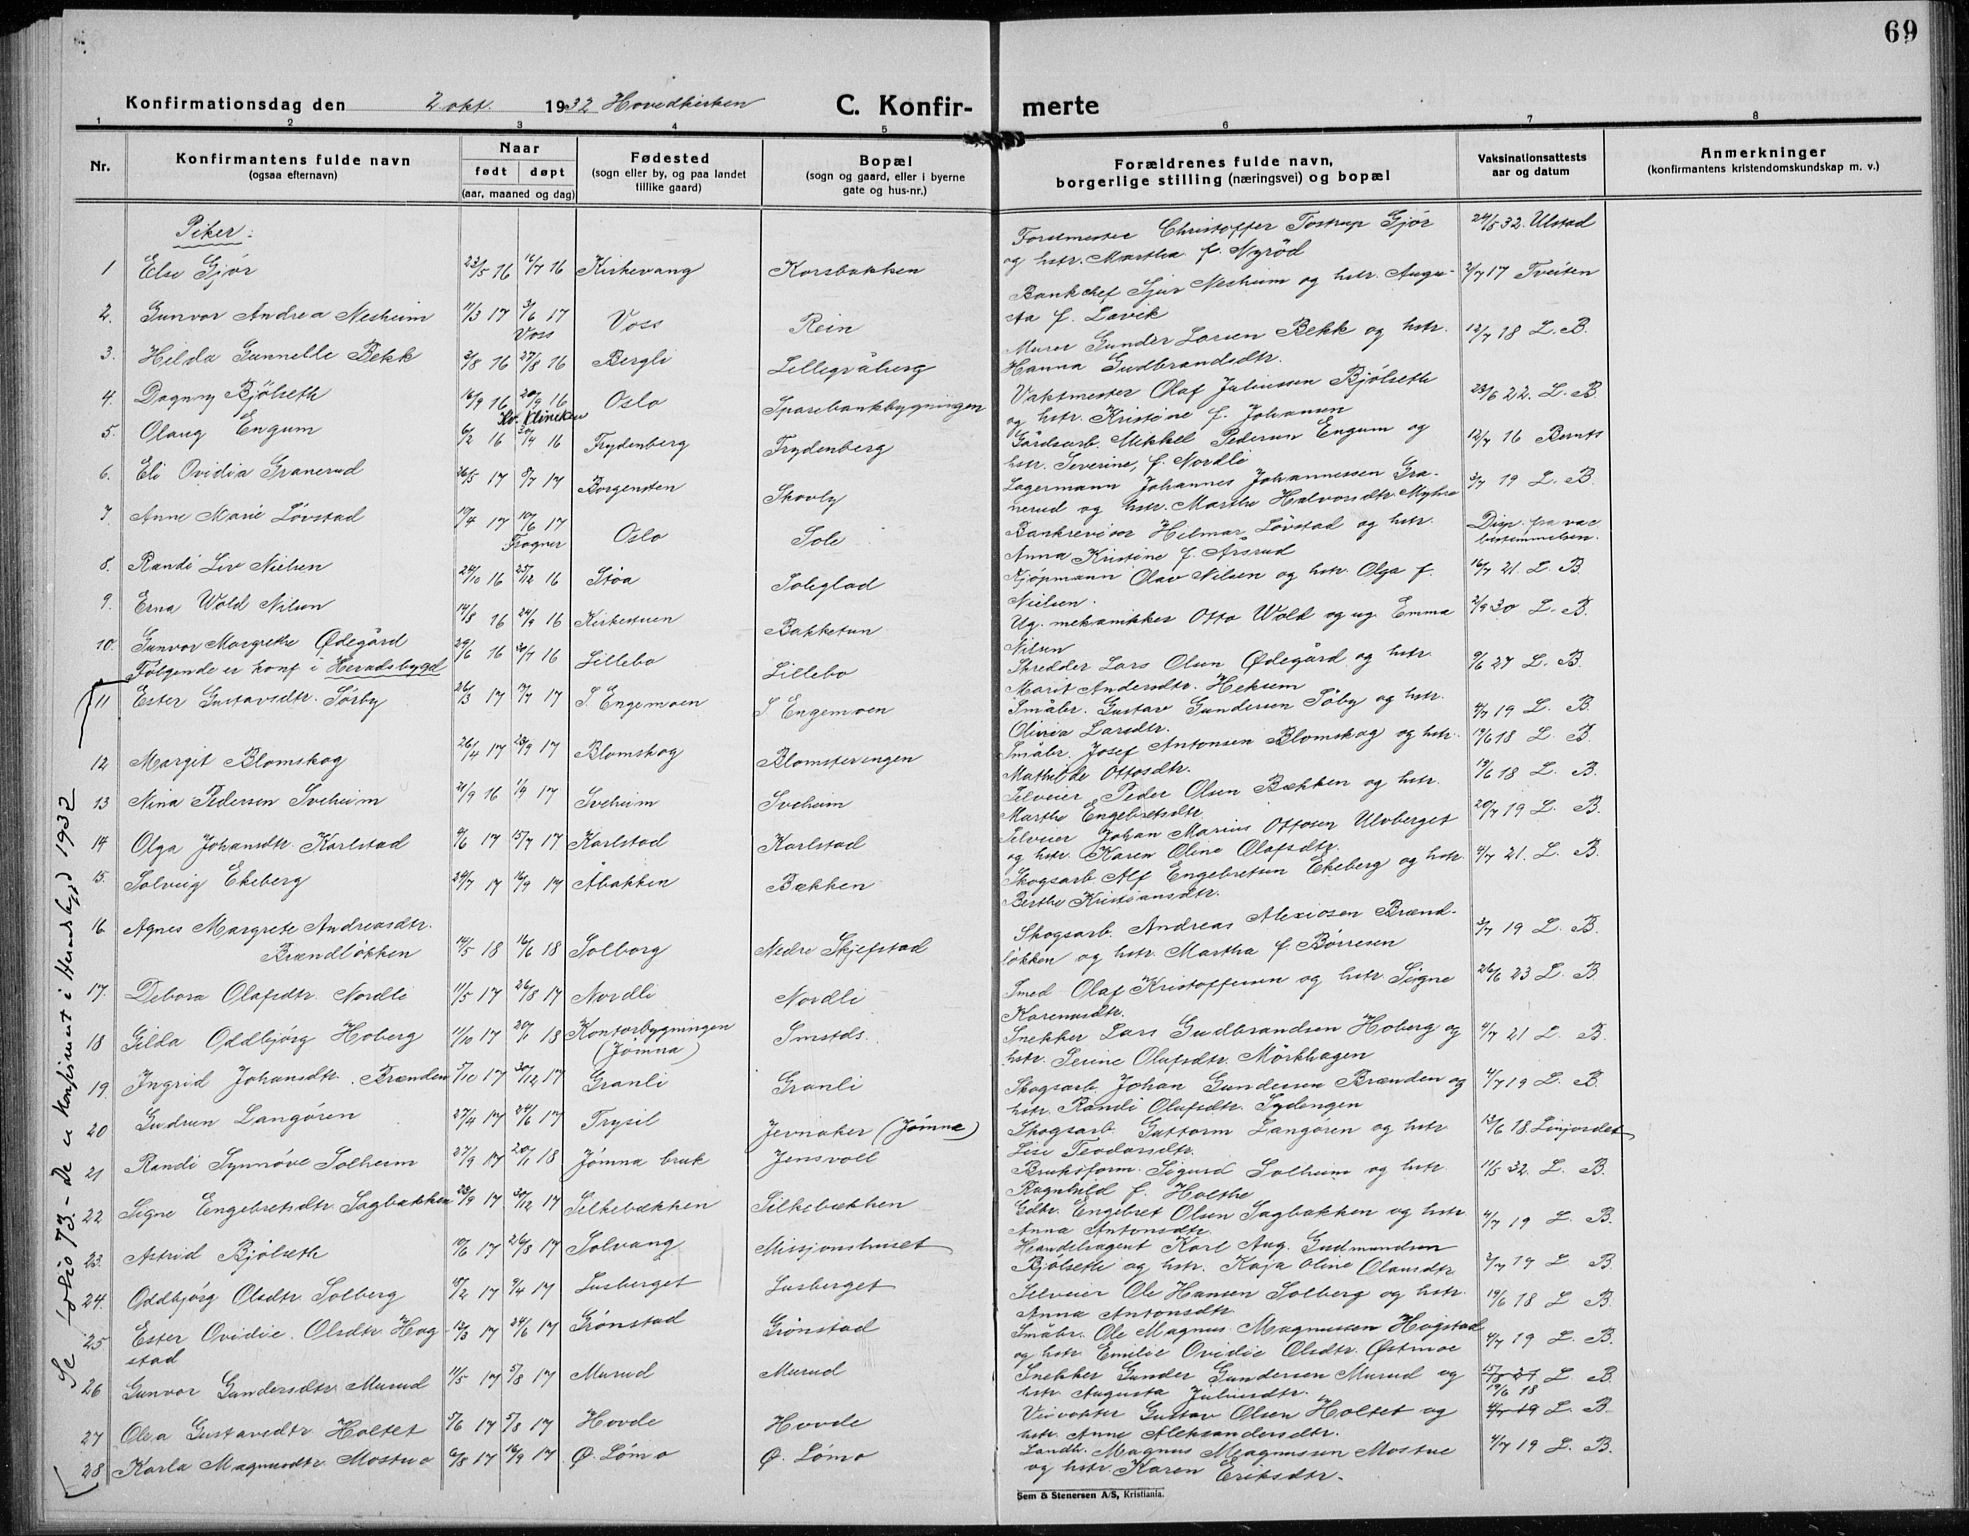 69
Konfirmationsdag den 2 okt. 1932 Hovedkirken C. Konfir- merte
1 2 3 4 5 6 7 8
Nr. Konfirmantens fulde navn (ogsaa efternavn) Naar født døpt (aar, maaned og dag) Fødested (sogn eller by, og paa landet tillike gaard) Bopæl (sogn og gaard, eller i byerne gate og hus-nr.) Forældrenes fulde navn, borgerlige stilling (næringsvei) og bopæl Vaksinationsattests aar og datum Anmerkninger (konfirmantens kristendomskundskap m. v.)
Piker:
1 Else Gjør 23/5 16 16/7 16 Kirkevang Korsbakken Forstmester Christoffer Tostrup Gjør 24/5 32. Ulstad
og hstr. Martha f. Nyrød
2. Gunvor Andrea Nesheim 11/3 17 3/6 17 Voss Voss Rein Bankchef Sjur Nesheim og hstr. Augu- 2/7 17 Tveiten
sta f. Lavik
3. Hilda Gunnelle Bekk 3/8 16 27/8 16 Bergli Lillegråberg Murer Gunder Larsen Bekk og hstr. 12/7 18 L. B.
Hanna Gudbrandsdtr.
4. Dagny Bjølseth 16/9 16 20/9 16 Kv. Kliniken Oslo Sparebankbygningen Vaktmester Olaf Juliussen Bjølseth 23/6 22. L. B.
og hstr. Kristine f. Johansen
5. Olaug Engum 6/2 16 30/4 16 Frydenberg Frydenberg Gårdsarb. Mikkel Pedersen Engum og 12/7 16 Bernts
hstr. Severine, f. Nordli
6. Eli Ovidia Granerud 26/5 17 8/7 17 Borgensten Skovly Lagermann Johannes Johannessen Gra- 3/7 19 L. B.
nerud og hstr. Marthe Halvorsdtr. Myhre
7. Anne Marie Løvstad 19/4 17 10/6 17 Frogner Oslo Sole Bankrevisor Hilmar Løvstad og hstr. Disp. fra vac
Anna Kristine f. Årsrud bestemmelsen.
8. Randi Liv Nielsen 24/10 16 25/12 16 Støa Soleglad Kjøpmann Olav Nilsen og hstr. Olga f. 16/7 21 L. B.
Nielsen.
9. Erna Wold Nilsen 14/8 16 24/9 16 Kirkestuen Bakketun Ug. mekanikker Otto Wold og ug. Emma 2/9 30 L. B.
Nilsen
10. Gunvor Margrethe Ødegård 29/6 16 30/7 16 Lillebo Lillebo Skredder Lars Olsen Ødegård og hstr. 9/6 27 L. B.
Marit Andersdtr. Heksem
Følgende er konf i Heradsbygd
11 Ester Gustavsdtr. Sørby 26/3 17 9/7 17 S. Engemoen S Engemoen Småbr. Gustav Gundersen Søby og hstr. 4/7 19 L. B.
Olivia Larsdtr.
12 Margit Blomskog 26/4 17 23/9 17 Blomskog Blomsteringen Småbr. Josef Antonsen Blomskog og hstr. 19/6 18 L. B.
Mathilde Ottosdtr.
13 Nina Pedersen Sveheim 21/9 16 1/9 17 Sveheim Sveheim Selveier Peder Olsen Bækken og hstr. 19/6 18 L. B.
Marthe Engebretsdtr.
14 Olga Johansdtr. Karlstad 9/6 17 15/7 17 Karlstad Karlstad Selveier Johan Marius Ottosen Ulvberget 20/7 19 L. B.
og hstr. Karen Oline Olafsdtr.
15. Solveig Ekeberg 24/7 17 16/9 17 Åbakken Bækken Skogsarb. Alf Engebretsen Ekeberg og hstr 4/7 21. L. B.
Berthe Kristiansdtr.
16. Agnes Margrete Andreasdtr. Skogsarb. Andreas Alexiosen Brænd- 3/7 19 L. B.
Brændløkken 14/5 18 16/6 18 Solborg Nedre Skjefstad løkken og hstr. Martha f. Børresen
17. Debora Olafsdtr. Nordli 11/5 17 26/8 17 Nordli Nordli Smed Olaf Kristoffersen og hstr. Signe 26/6 23 L. B
Karenusdtr.
18 Gilda Oddbjørg Hoberg 11/10 17 20/1 18 Kontorbygningen (Jømna) Smstds. Snekker Lars Gudbrandsen Hoberg og 4/7 21 L. B.
hstr. Serine Olafsdtr. Mörkhagen
19. Ingrid Johansdtr. Brænden 5/10 17 30/12 17 Granli Granli Skogsarb. Johan Gundersen Brænden og 4/7 19 L. B.
hstr. Randi Olafsdtr. Sydengen
20 Gudrun Langøren 27/4 17 24/6 17 Trysil Jevnaker (Jømna) Skogsarb. Guttorm Langøren og hstr 12/6 18. Linjordet
Lise Teodorsdtr.
21 Randi Synnøve Solheim 27/9 17 20/1 18 Jømna bruk Jensvoll Bruksform. Sigurd Solheim og hstr. 11/5 32. L. B.
Ragnhild f. Holthe
22 Signe Engebretsdtr. Sagbakken 23/9 17 30/12 17 Silkebækken Silkebækken Gdtr. Engebret Olsen Sagbakken og hstr. 4/7 19 L. B.
Anna Antonsdtr.
23. Astrid Bjølseth 10/6 17 26/8 17 Solvang Missjonshuset Handelsagent Karl Aug. Gudmundsen 3/7 19 L B.
Bjølseth og hstr. Kaja Oline Olausdtr.
24. Oddbjørg Olsdtr. Solberg 10/2 17 9/4 17 Lusberget Lusberget Selveier Ole Hansen Solberg og hstr. 19/6 18 L B.
Anna Antonsdtr.
25 Ester Ovidie Olsdtr. Hag- 12/3 17 24/6 17 Grønstad Grønstad Småbr. Ole Magnus Magnussen Hagstad 4/7 19 L. B.
stad og hstr. Emilie Ovidie Olsdtr. Østmoe
26 Gunvor Gundersdtr. Murud 11/5 17 5/8 17 Murud Murud Snekker Gunder Gundersen Murud og 15/8 27 L B.
hstr. Augusta Juliusdtr. 19/6 18
27 Olea Gustavsdtr. Holtet 5/6 17 5/8 17 Hovde Hovde Veivokter Gustav Olsen Holtet og 4/7 19 L. B.
hstr. Anne Aleksandersdtr.
28 Karla Magnusdtr. Mostue 6/8 17 16/9 17 Ø. Lømo Ø. Lømo Landh. Magnus Magnussen Mostue 4/7 19 L. B.
og hstr. Karen Eriksdtr.
Se folio 73. - De er konfirmert i Heradsbygd 1932
Sem & Stenersen A/S, Kristiania.